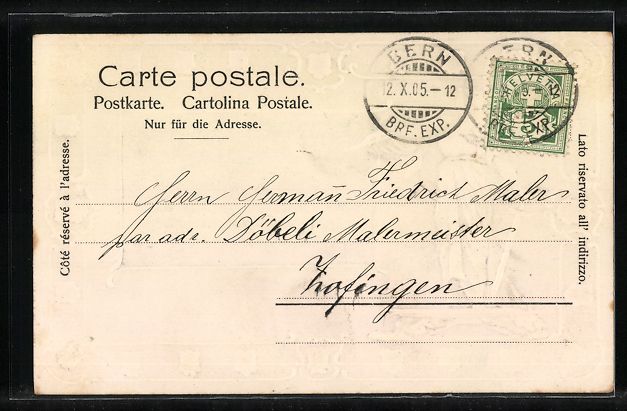 Carte postale.
Postkarte. Cartolina Postale.
Nur für die Adresse.
Côté réservé à l'adresse.
Lato riservato all' indirizzo.
BERN
12. X. 05. — 12
BRF. EXP.
HELVETIA
Herrn Hermann Friedrich Maler
par adr. Döbeli Malermeister
Zofingen